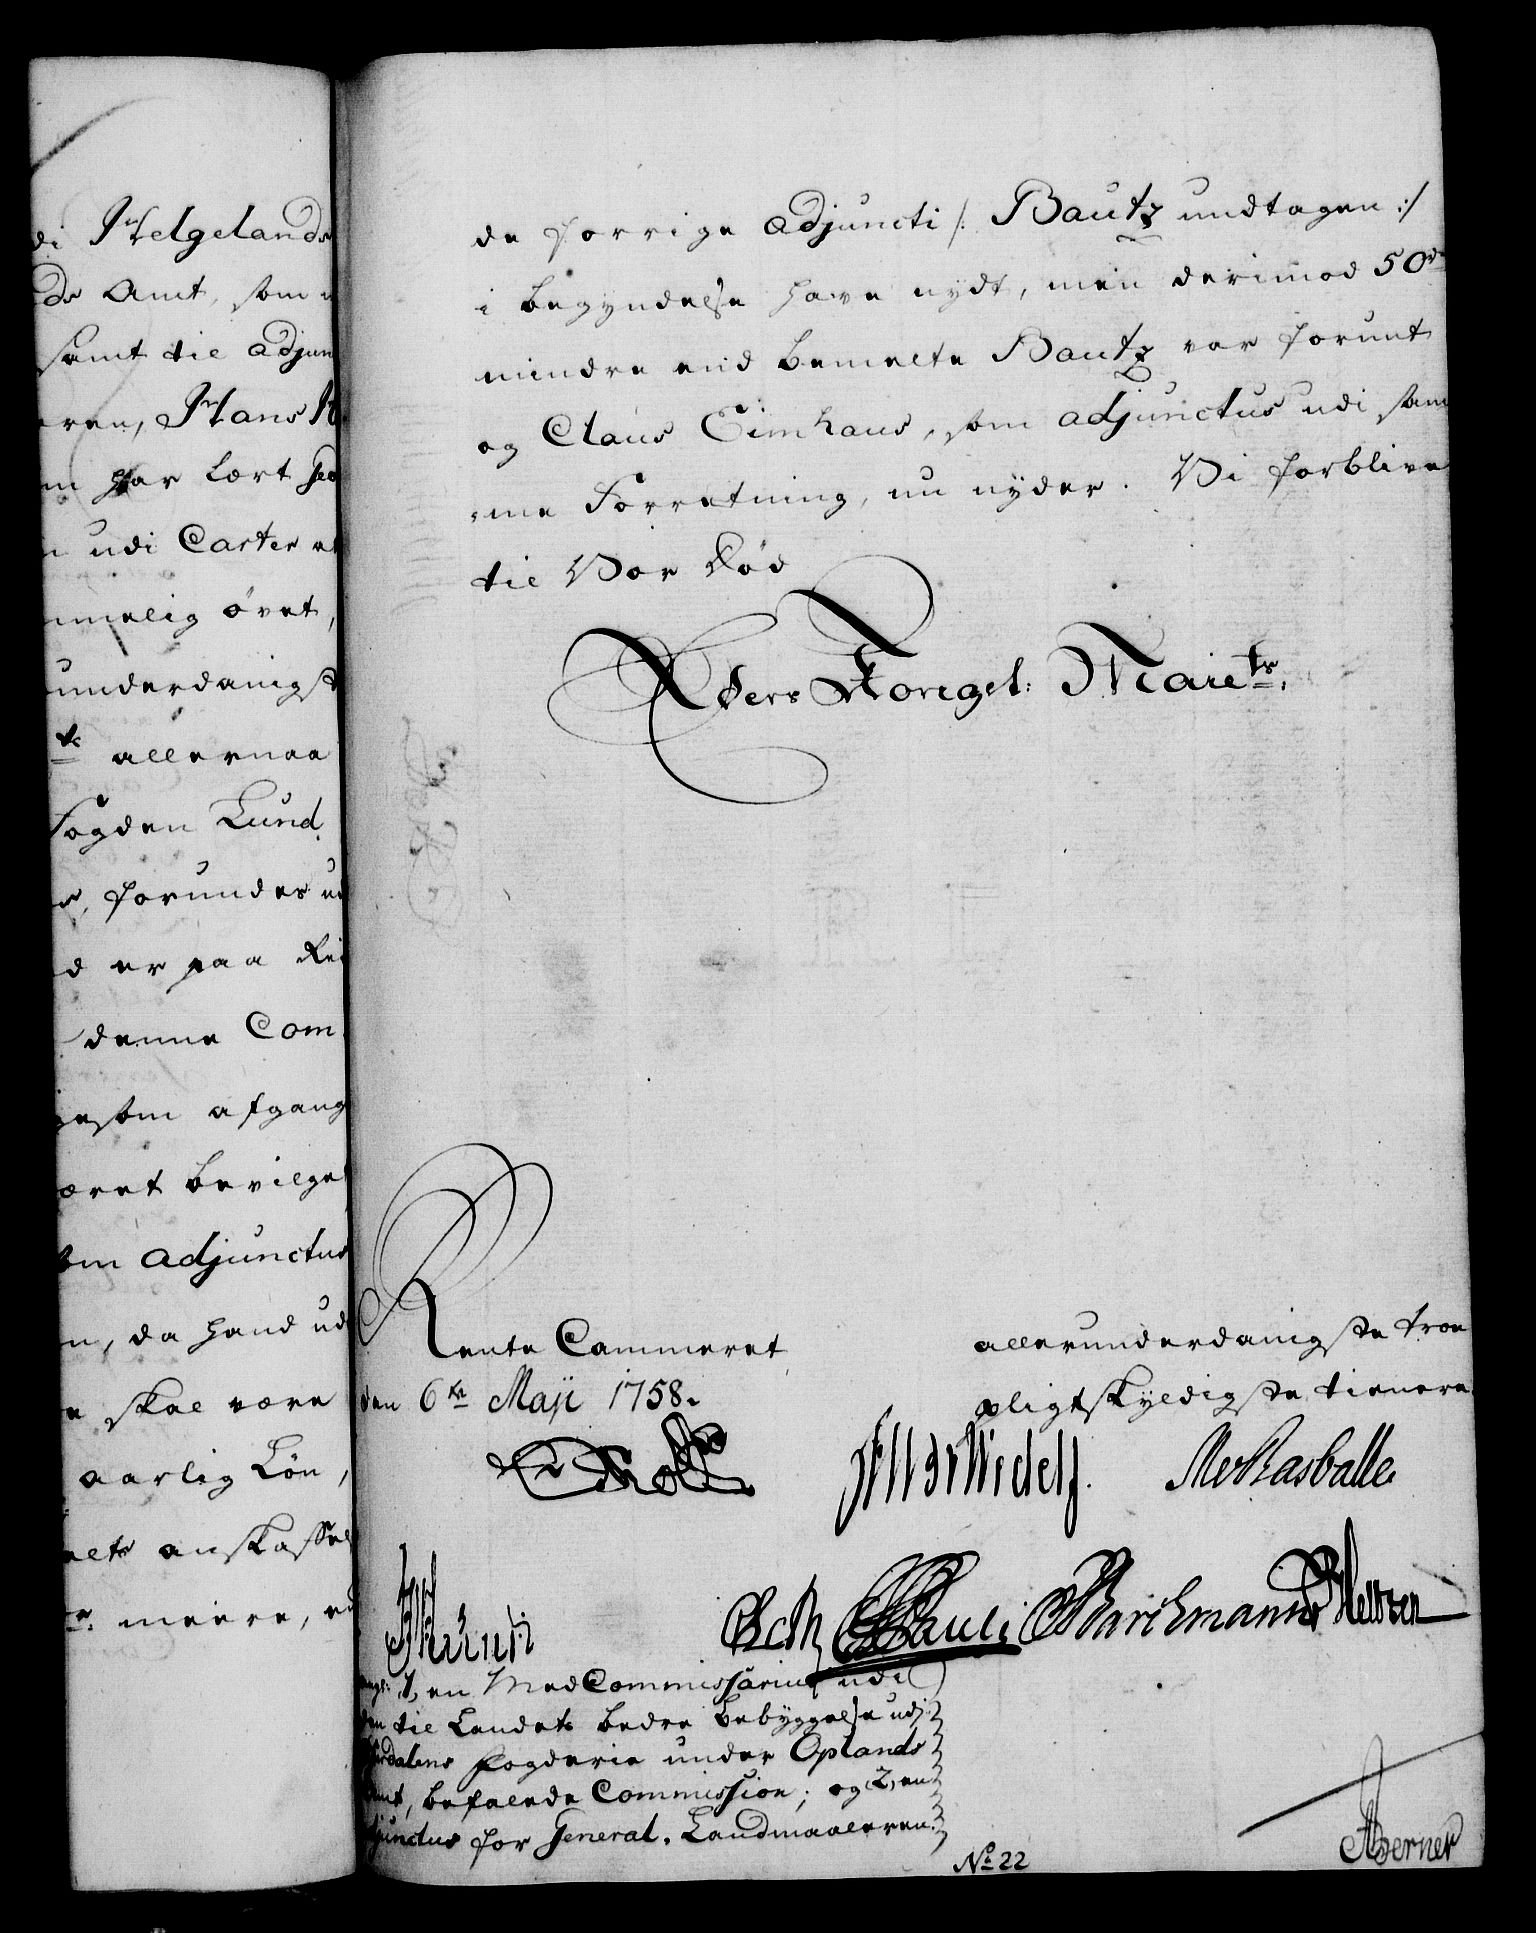 di Helgelands
ds Amt, som
samt til adjun
eren, Hans
m har lært geo
udi Carter at
mmelig øvet,
underdanigst
allernaa
Fogden Lund
forundes ud
d er paa Rei
denne Com
gesom afgang
æret bevilget
om adjunctus
n, da hand ud
skal være
aarlig Løn,
anskaffel
meere,
de forrige adjuncti /: Bautz undtagen :/
i begyndelse have nydt, men derimod 50 rd
mindre end bemelte Bautz var forunt
og Claus Eimhaus, som adjunctus udi sam
me Forretning, nu nyder. Vi forblive
til Vor Død
Ders Kongel: Maiets.
Rente Cammeret
den 6te Maji 1758.
allerunderdanigste troe
pligtskyldigste tienere
Holst Rasballe
Pauli Barchmann Heltzen
1, en MedCommissarius udi
den til Landets bedre bebyggelse udi
Østerdalens fogderie under Oplands
Amt, befalede Commission; og 2, en
adjunctus for General-Landmaaleren.
No 22
Aberner